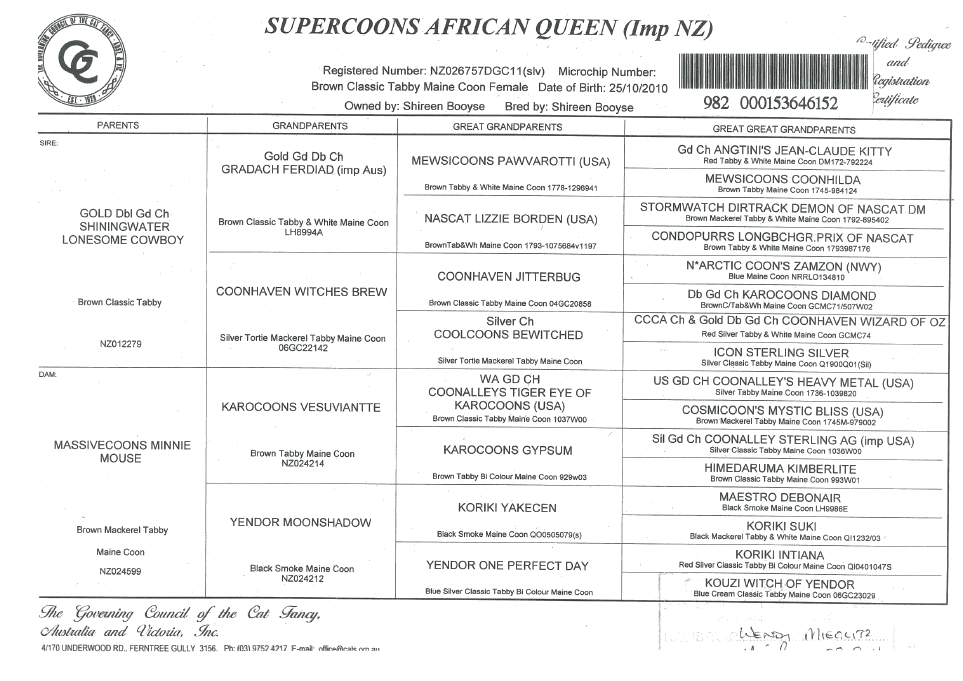 SUPERCOONS AFRICAN QUEEN (Imp NZ)
Pedigree
and
Registration
Certificate
Registered Number: NZ026757DGC11(slv) Microchip Number:
Brown Classic Tabby Maine Coon Female Date of Birth: 25/10/2010
Owned by: Shireen Booyse Bred by: Shireen Booyse
982 000153646152
PARENTS
GRANDPARENTS
GREAT GRANDPARENTS
GREAT GREAT GRANDPARENTS
SIRE:
GOLD Dbl Gd Ch
SHININGWATER
LONESOME COWBOY
Brown Classic Tabby
NZ012279
DAM:
MASSIVECOONS MINNIE
MOUSE
Brown Mackerel Tabby
Maine Coon
NZ024599
Gold Gd Db Ch
GRADACH FERDIAD (imp Aus)
Brown Classic Tabby & White Maine Coon
LH8994A
COONHAVEN WITCHES BREW
Silver Tortie Mackerel Tabby Maine Coon
06GC22142
KAROCOONS VESUVIANTTE
Brown Tabby Maine Coon
NZ024214
YENDOR MOONSHADOW
Black Smoke Maine Coon
NZ024212
MEWSICOONS PAWVAROTTI (USA)
Brown Tabby & White Maine Coon 1778-1296941
NASCAT LIZZIE BORDEN (USA)
BrownTab&Wh Maine Coon 1793-1075684v1197
COONHAVEN JITTERBUG
Brown Classic Tabby Maine Coon 04GC20858
Silver Ch
COOLCOONS BEWITCHED
Silver Tortie Mackerel Tabby Maine Coon
WA GD CH
COONALLEYS TIGER EYE OF
KAROCOONS (USA)
Brown Classic Tabby Maine Coon 1037W00
KAROCOONS GYPSUM
Brown Tabby Bi Colour Maine Coon 929w03
KORIKI YAKECEN
Black Smoke Maine Coon QO0505079(s)
YENDOR ONE PERFECT DAY
Blue Silver Classic Tabby Bi Colour Maine Coon
Gd Ch ANGTINI'S JEAN-CLAUDE KITTY
Red Tabby & White Maine Coon DM172-792224
MEWSICOONS COONHILDA
Brown Tabby Maine Coon 1745-984124
STORMWATCH DIRTRACK DEMON OF NASCAT DM
Brown Mackerel Tabby & White Maine Coon 1792-895402
CONDOPURRS LONGBCHGR.PRIX OF NASCAT
Brown Tabby & White Maine Coon 1793987176
N*ARCTIC COON'S ZAMZON (NWY)
Blue Maine Coon NRRLO134810
Db Gd Ch KAROCOONS DIAMOND
BrownC/Tab&Wh Maine Coon GCMC71/507W02
CCCA Ch & Gold Db Gd Ch COONHAVEN WIZARD OF OZ
Red Silver Tabby & White Maine Coon GCMC74
ICON STERLING SILVER
Silver Classic Tabby Maine Coon Q1900Q01(Sil)
US GD CH COONALLEY'S HEAVY METAL (USA)
Silver Tabby Maine Coon 1736-1039820
COSMICOON'S MYSTIC BLISS (USA)
Brown Mackerel Tabby Maine Coon 1745M-979002
Sil Gd Ch COONALLEY STERLING AG (imp USA)
Silver Classic Tabby Maine Coon 1036W00
HIMEDARUMA KIMBERLITE
Brown Classic Tabby Maine Coon 993W01
MAESTRO DEBONAIR
Black Smoke Maine Coon LH9986E
KORIKI SUKI
Black Mackerel Tabby & White Maine Coon QI1232/03
KORIKI INTIANA
Red Silver Classic Tabby Bi Colour Maine Coon QI0401047S
KOUZI WITCH OF YENDOR
Blue Cream Classic Tabby Maine Coon 06GC23029
The Governing Council of the Cat Fancy,
Australia and Victoria, Inc.
4/170 UNDERWOOD RD., FERNTREE GULLY 3156. Ph: (03) 9752 4217 E-mail:
WENDY MIEGLITZ